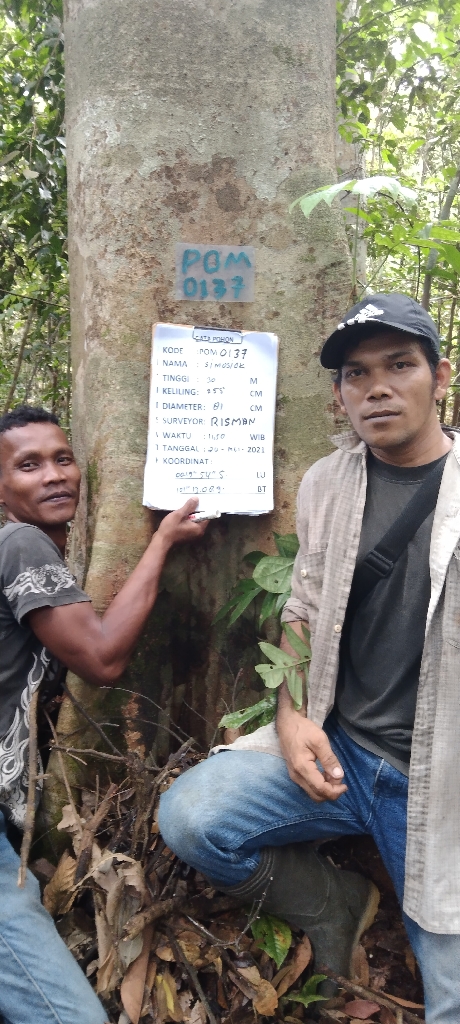 POM
0137
DATA POHON
KODE : POM 0137
NAMA : SIMOSIOK
TINGGI : 30 M
KELILING: 255 CM
DIAMETER: 81 CM
SURVEYOR: RISMAN
WAKTU : 11:50 WIB
TANGGAL : 20 - MEI - 2021
KOORDINAT:
LU
BT